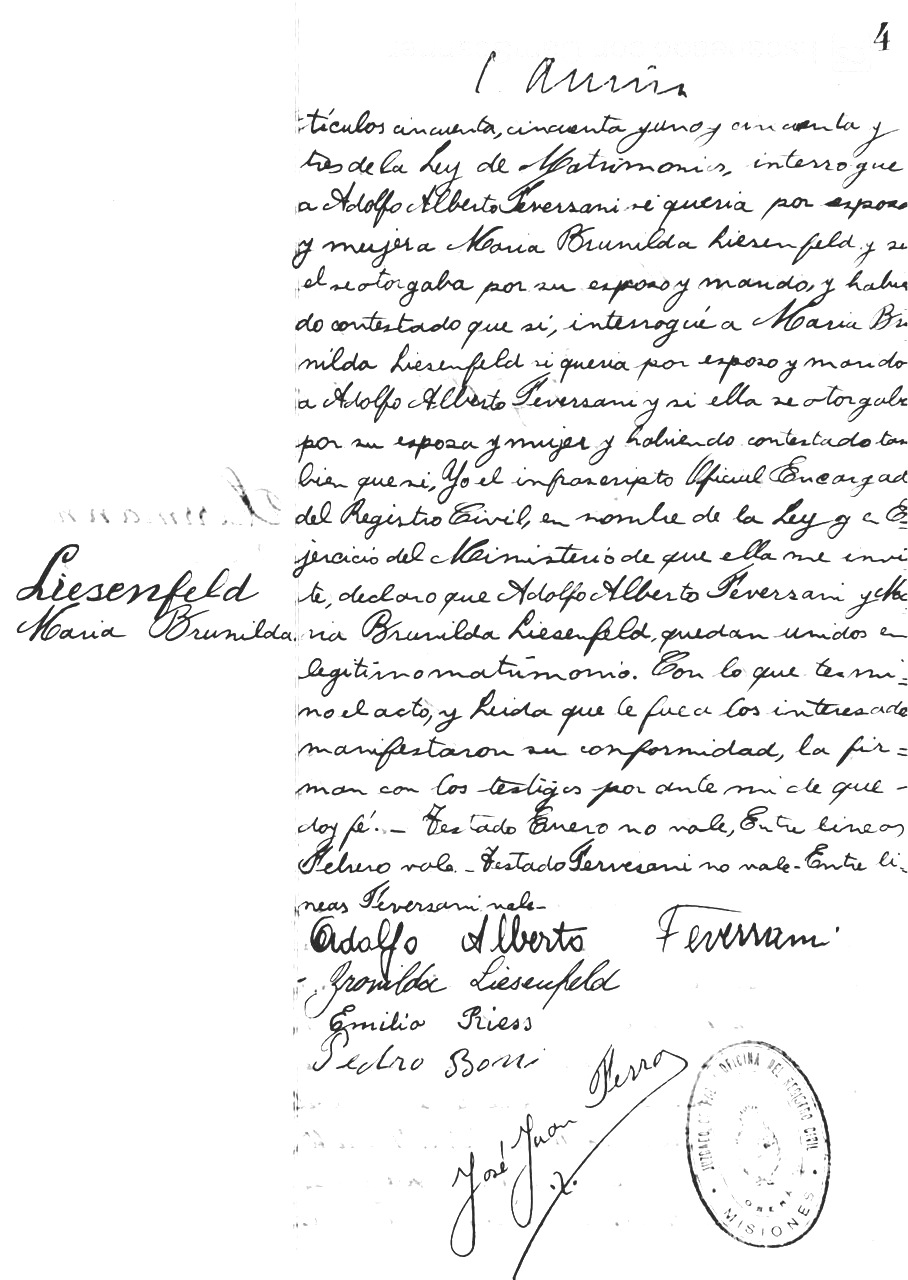 4
tículos cincuenta, cincuenta y uno y cincuenta y
tres de la Ley de Matrimonio, interrogue
a Adolfo Alberto Feversani si queria por esposa
y mujer a Maria Brunilda Liesenfeld y si
el se otorgaba por su esposo y marido, y habien
do contestado que sí, interrogué a Maria Bru
nilda Liesenfeld si queria por esposo y marido
a Adolfo Alberto Feversani y si ella se otorgaba
por su esposa y mujer y habiendo contestado tam
bien que si, Yo el infrascripto Oficial Encargad
del Registro Civil, en nombre de la Ley y en E=
jercicio del Ministerio de que ella me invi
te, declaro que Adolfo Alberto Feversani y Ma
Liesenfeld
Maria Brunilda.
ria Brunilda Liesenfeld, quedan unidos en
legitimo matrimonio. Con lo que termi=
no el acto, y Leida que le fue a los interesado
manifestaron su conformidad, la fir=
man con los testigos por ante mi de que -
doy fé. - Testado Enero no vale, Entre lineas
Febrero vale - Testado Fervesani no vale - Entre li=
neas Feversani vale -
Adolfo Alberto Feversani
Bronilda Liesenfeld
Emilio Riess
Pedro Boni
José Juan Ferro
JUZGADO DE PAZ - OFICINA DEL REGISTRO CIVIL
OBERÁ
MISIONES